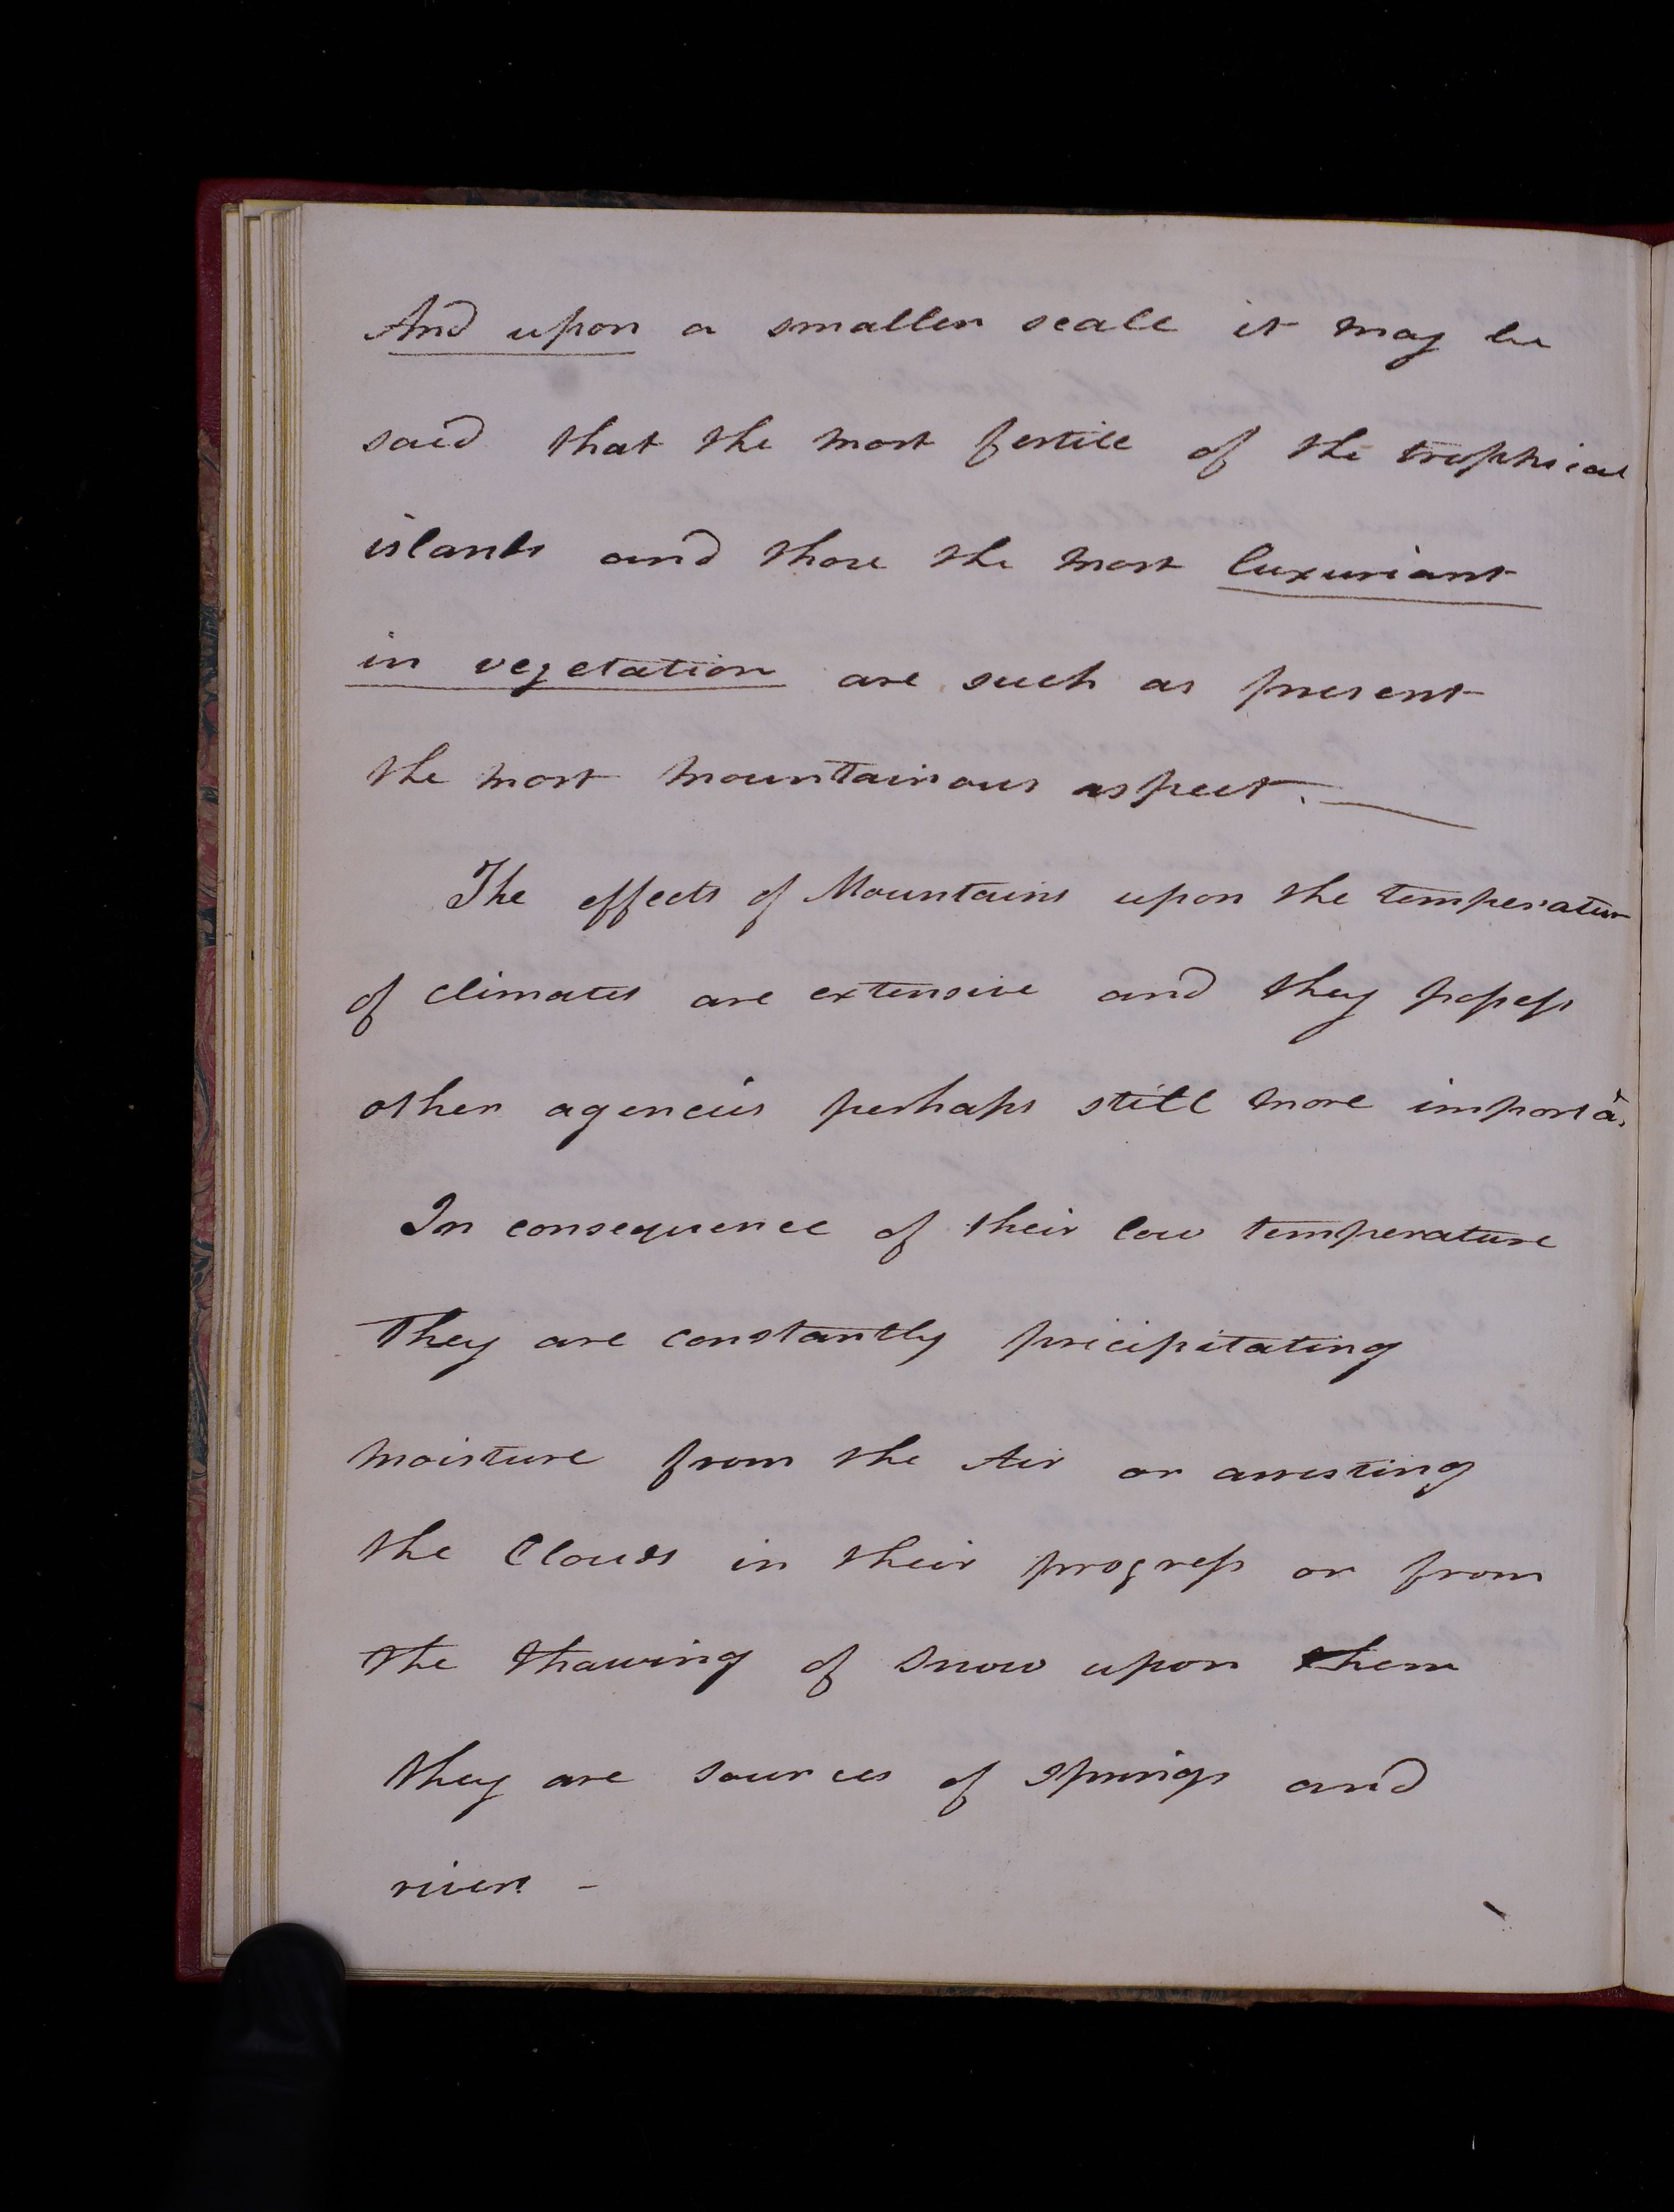 And upon a smaller scale it may be
said that the most fertile of the trophical
islands and those the most luxuriant
in vegetation are such as present
the most mountainous aspect. —
The effects of Mountains upon the temperatur
of climates are extensive and they possess
other agencies perhaps still more importa.
In consequence of their low temperature
They are constantly pricipitating
moisture from the Air or arresting
the Clouds in their progress or from
the thawing of snow upon them
they are sources of springs and
rivers –